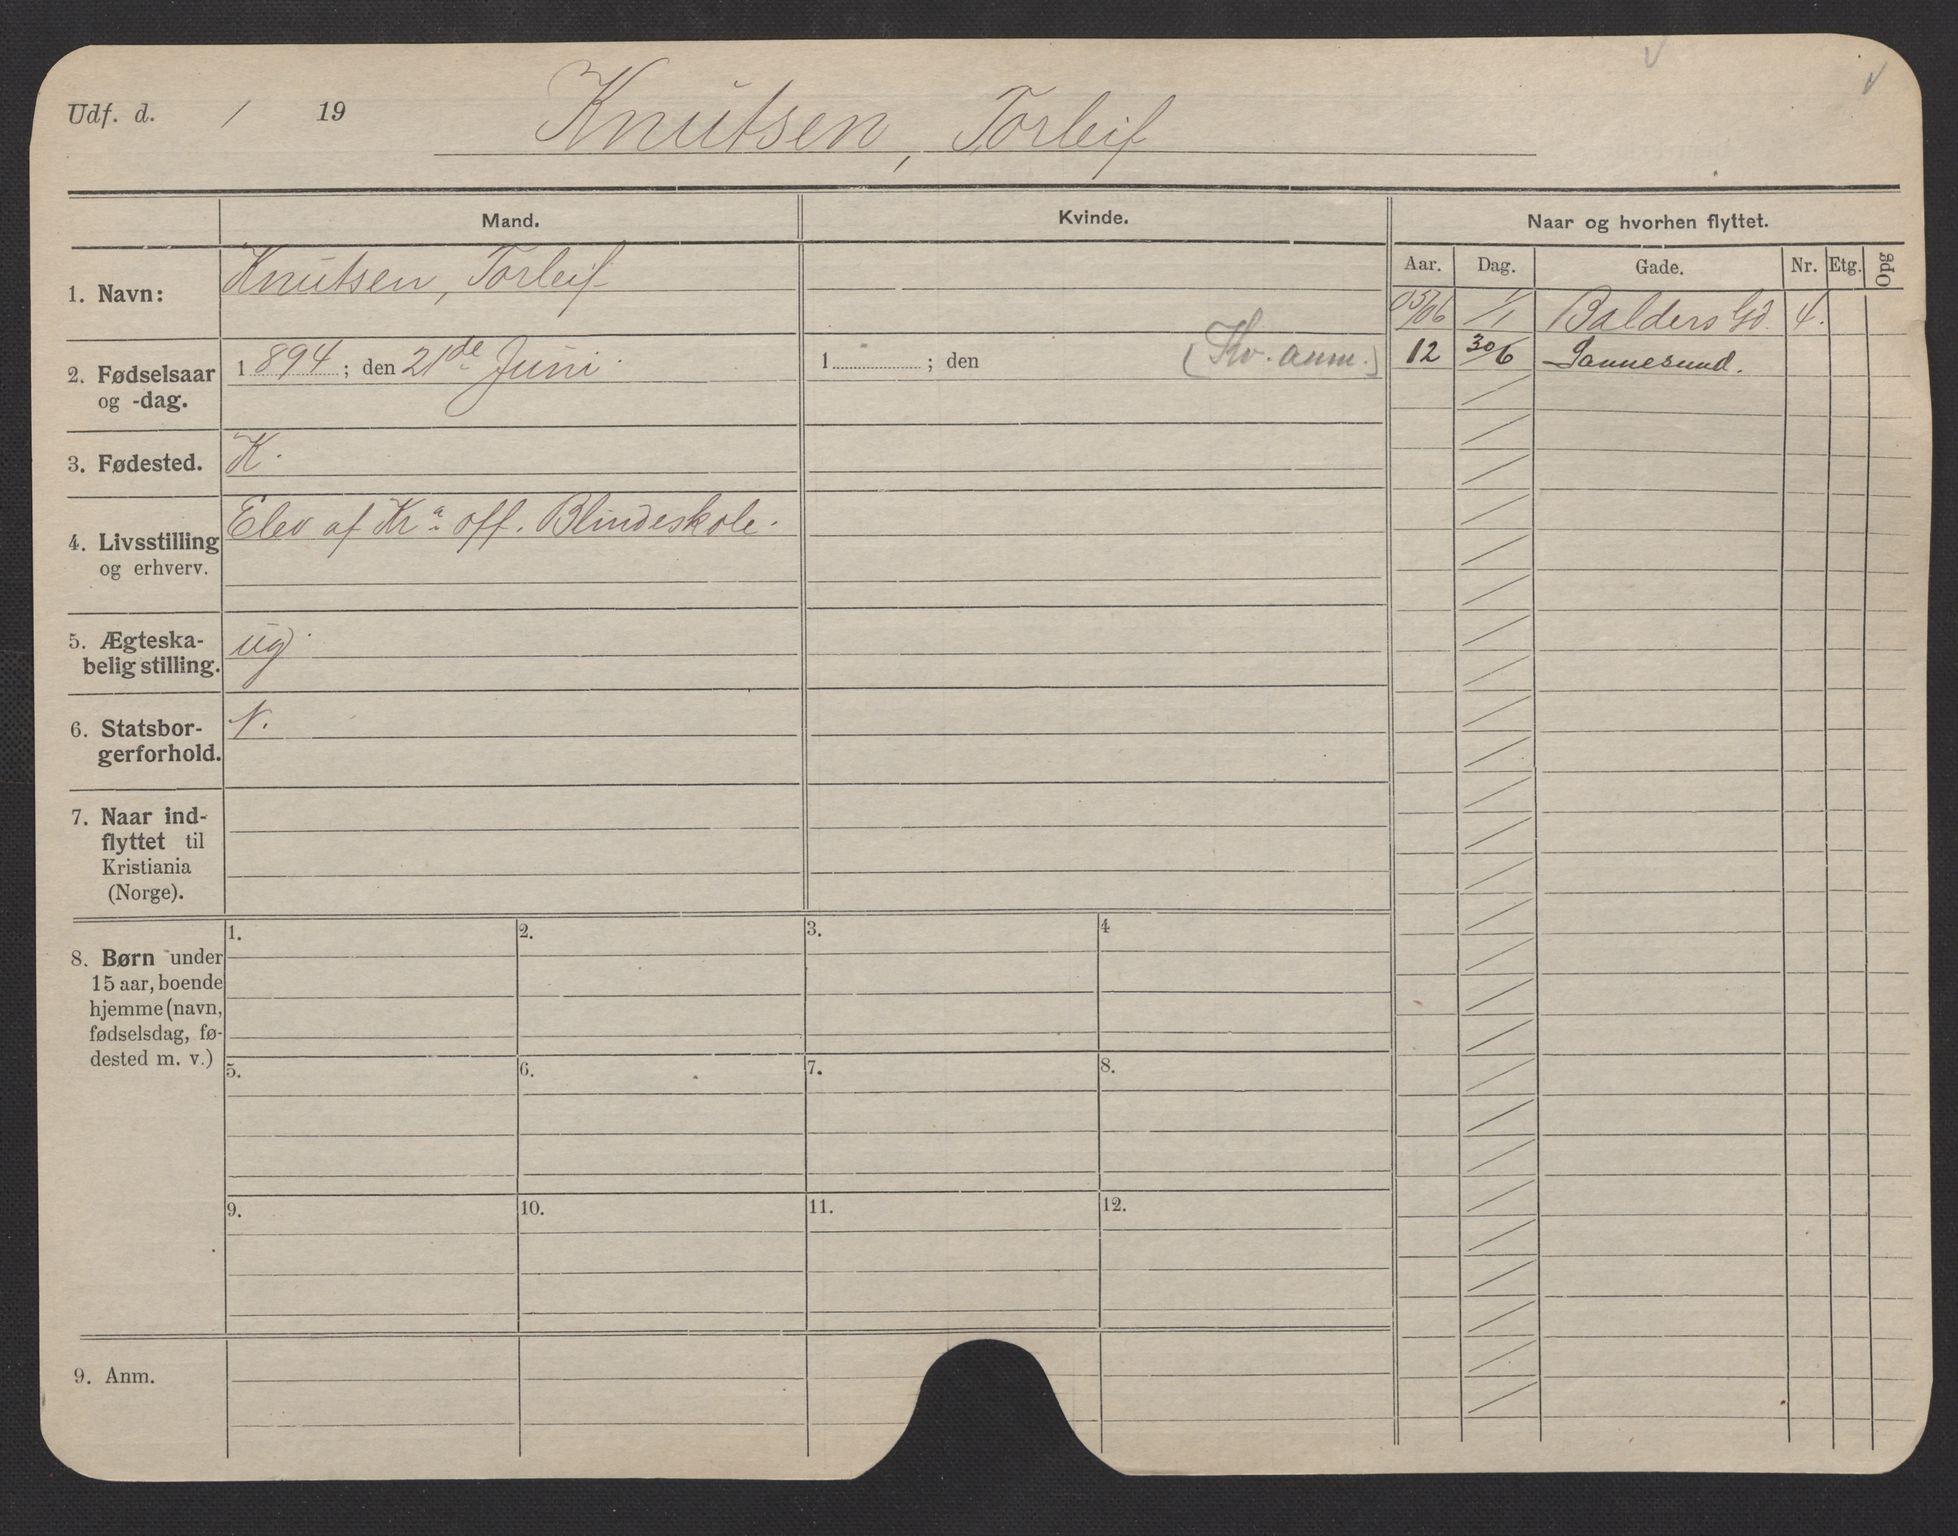 Udf. d. / 19
Knutsen, Torleif
Mand.
Kvinde.
Naar og hvorhen flyttet.
Aar. Dag. Gade. Nr. Etg. Opg
1. Navn:
Knutsen, Torleif
05/06 1/1 Balders Gd. 4.
2. Fødselsaar
og -dag.
1894; den 21de Juni.
1 ; den
(Kv. anm.)
12 30/6 Sannesund.
3. Fødested.
K.
4. Livsstilling
og erhverv.
Elev af Kra off. Blindeskole.
5. Ægteska-
belig stilling.
ug.
6. Statsbor-
gerforhold.
N.
7. Naar ind-
flyttet til
Kristiania
(Norge).
8. Børn under
15 aar, boende
hjemme (navn,
fødselsdag, fø-
dested m. v.)
1. 2. 3. 4
5. 6. 7. 8.
9. 10. 11. 12.
9. Anm.